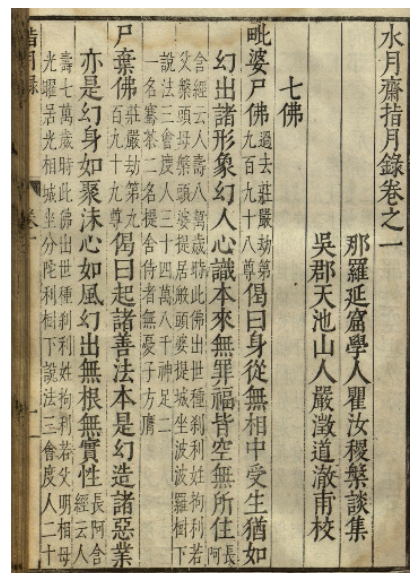 水月齋指月錄卷之一
那羅延窟學人瞿汝稷槃談集
吳郡天池山人嚴澂道澈甫校
七佛
毗婆尸佛過去莊嚴劫第九百九十八尊偈曰身從無相中受生猶如
幻出諸形象幻人心識本來無罪福皆空無所住長阿
含經云人壽八萬歲時此佛出世種剎利姓拘利若
父槃頭母槃頭婆提居槃頭婆提城坐波波羅樹下
說法三會度人三十四萬八千神足二
一名騫茶二名提舍侍者無憂子方膺
尸棄佛莊嚴劫第九百九十九尊偈曰起諸善法本是幻造諸惡業
亦是幻身如聚沫心如風幻出無根無實性長阿含經云人
壽七萬歲時此佛出世種剎利姓拘利若父明相母
光曜居光相城坐分陀利樹下說法三會度人二十